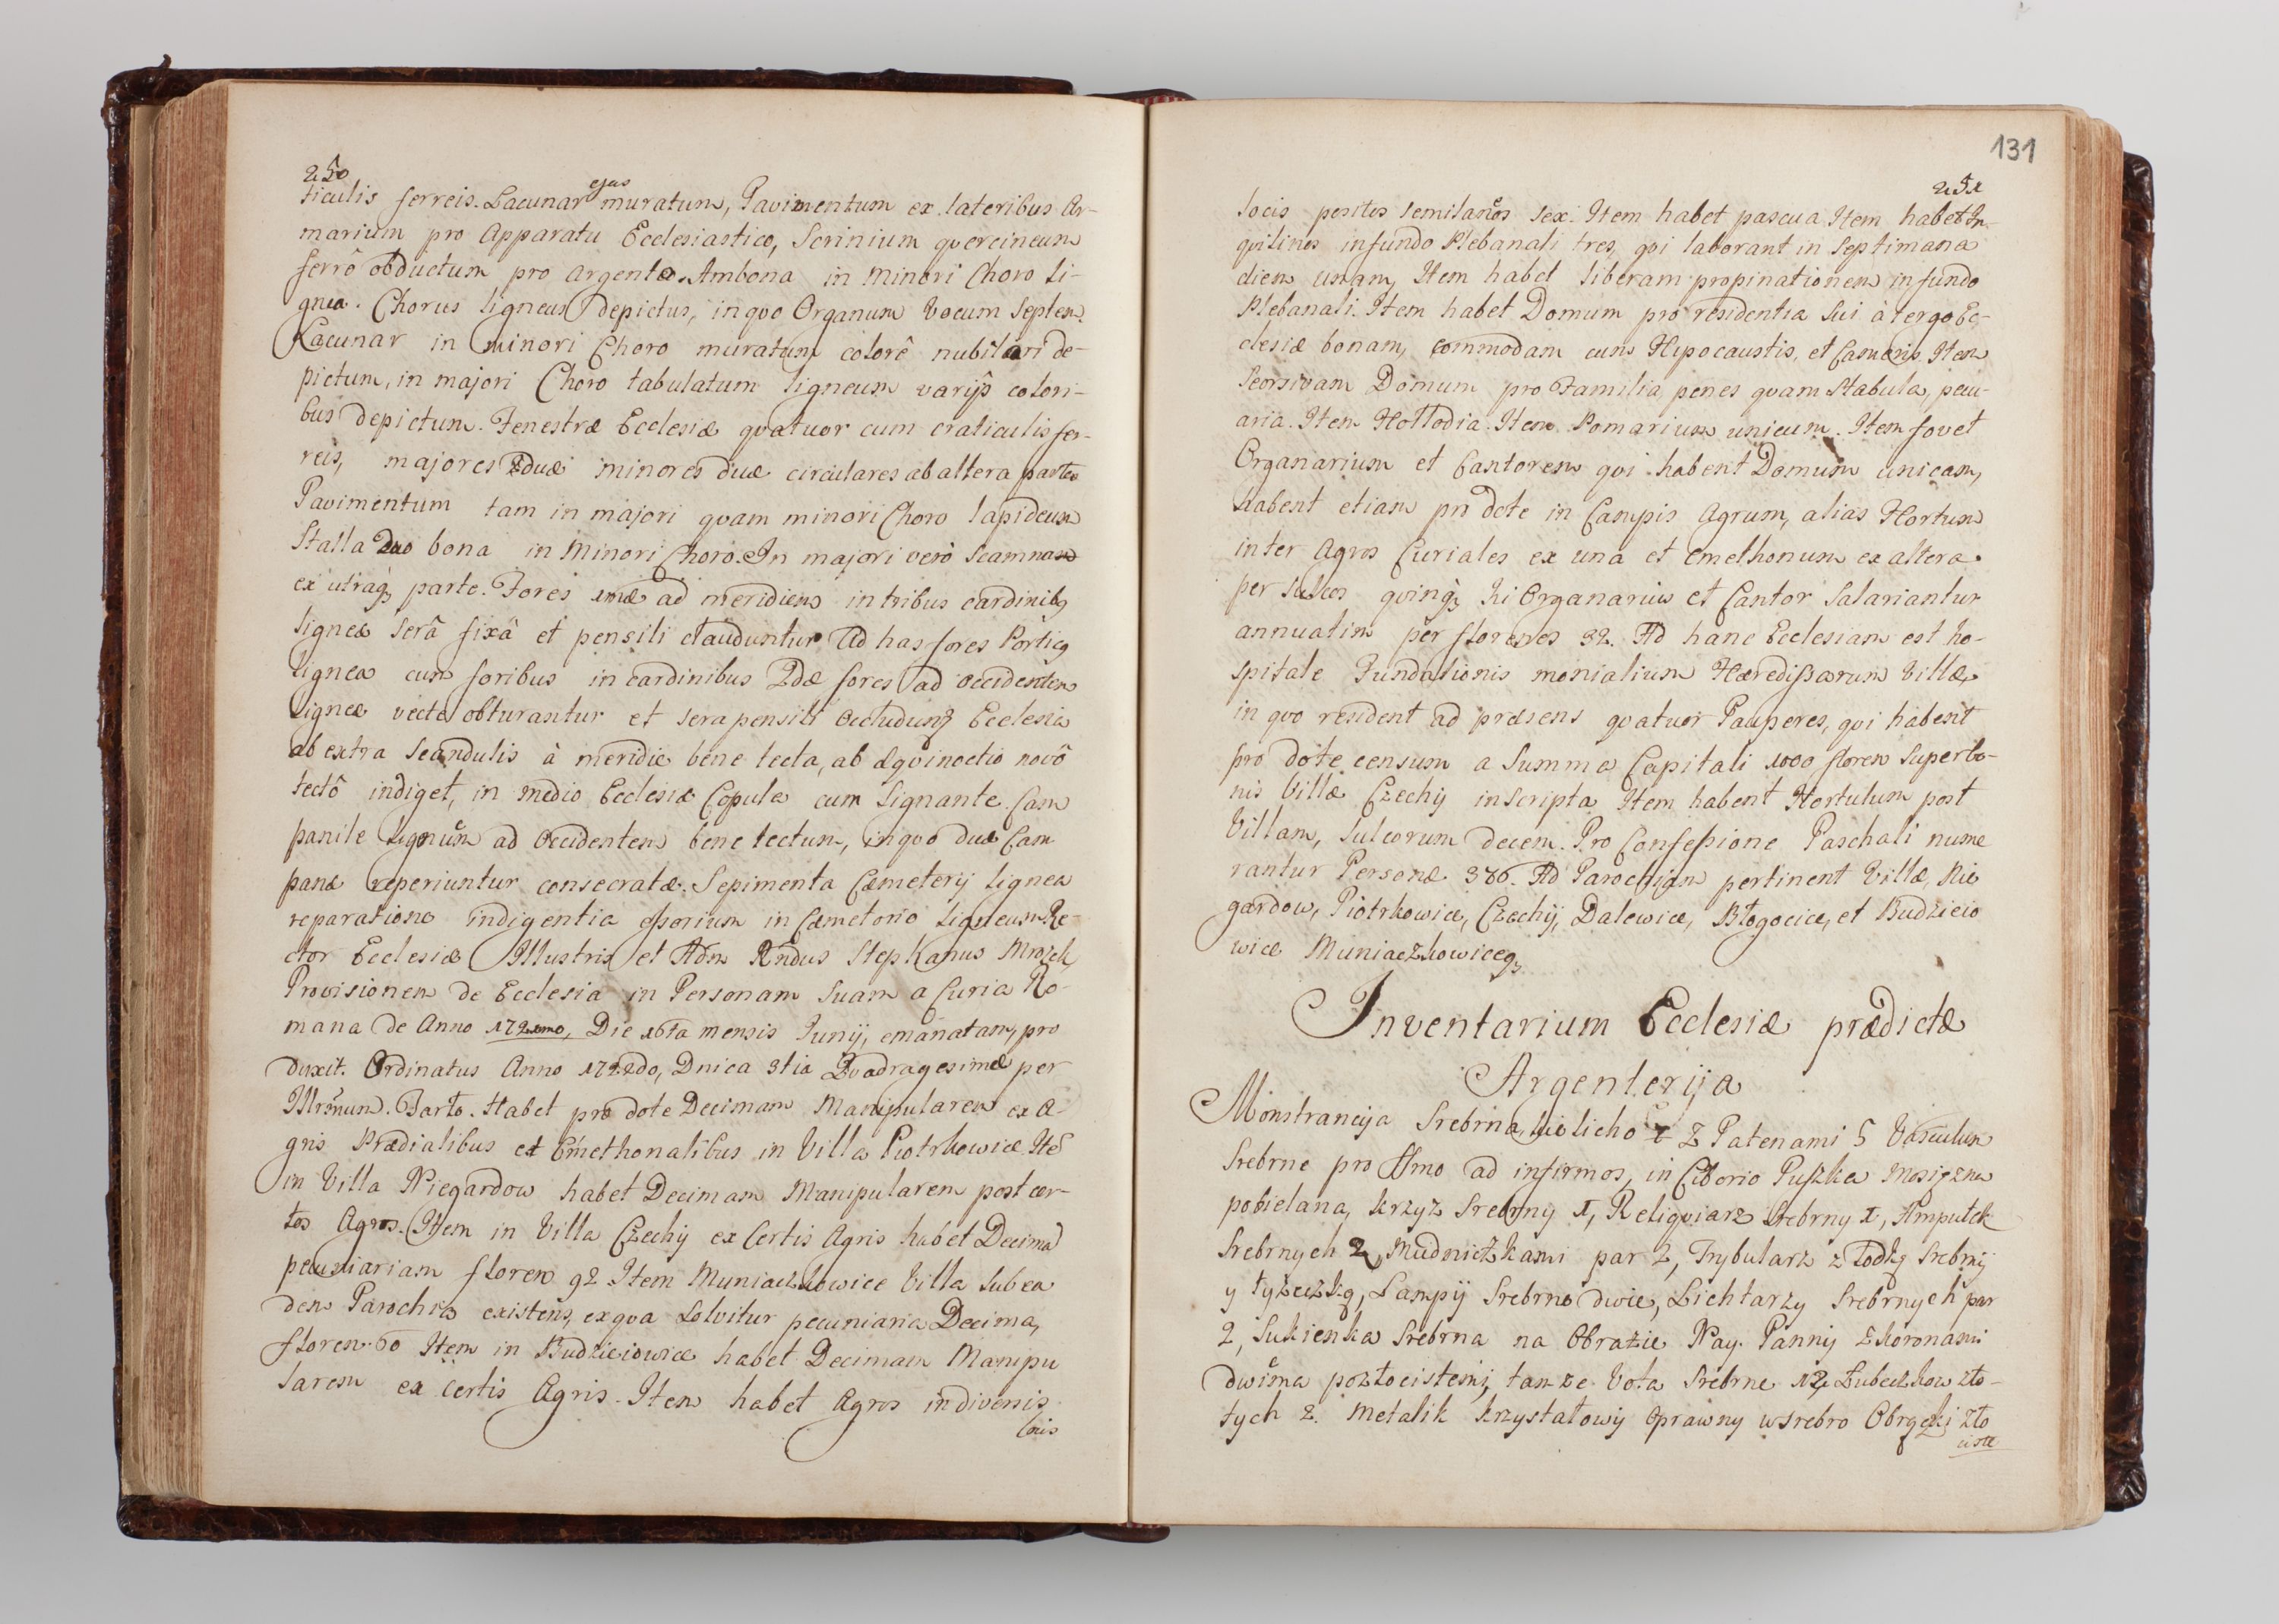 250
ticulis ferreis. Lacunar ejus muratum, Pavimentum ex lateribus Ar-
marium pro Apparatu Ecclesiastico, Scrinium qvercineum
ferrô obductum pro argento. Ambona in minori Choro li-
gnea. Chorus ligneus depictus, in qvo Organum Vocum Septem.
Lacunar in minori Choro muratum colorê nubilari de-
pictum, in majori Choro tabulatum ligneum varijs colori-
bus depictum. Fenestræ Ecclesiæ qvatuor cum craticulis fer-
reis, majores duæ minores duæ circulares ab altera parte
Pavimentum tam in majori qvam minori Choro lapideum
Stalla duo bona in Minori Choro. In majori verò Scamna
ex utraq; parte. Fores imæ ad meridiem in tribus cardinib9
ligneæ serâ fixâ et pensili clauduntur Ad has fores Portic9
lignea cum foribus in cardinibus 2dæ fores ad occidentem
ligneæ vecte obturantur et sera pensili occludunt Ecclesia
ab extra Scandulis à meridie bene tecta, ab Æqvinoctio novô
tectô indiget, in medio Ecclesiæ Copula cum Signante. Cam
panile ligneum ad Occidentem bene tectum, in qvo duæ Cam
panæ reperiuntur consecratæ. Sepimenta Cæmeterij lignea
reparatione indigentia ossorium in Cæmeterio ligneum Re-
ctor Ecclesiæ Illustris et Adm Rndus Stephanus Mrozek
Provisionem de Ecclesia in Personam Suam a Curia Ro-
mana de Anno Die 16ta mensis Junij, emanatam, pro
duxit. Ordinatus Anno 1722do, Dnica 3tia Qvadragesimæ per
Illrsmum. Tarło. Habet pro dote Decimam Manipularem ex A-
gris Prædialibus et Cmethonalibus in Villa Piotrkowice Itẽ
in Villa Niegardow habet Decimam Manipularem post cer-
tos Agros. Item in Villa Czechy ex Certis Agris habet Decimã
pecuniariam floren 92 Item Muniaczkowice Villa sub ea
dem Parochia existens, ex qva solvitur pecuniaria Decima,
floren. 60 Item in Budzieiowice habet Decimam Manipu
larem ex certis Agris. Item habet Agros in diversis
locis
131
251
locis positos semilaneos sex. Item habet pascua Item habet In-
qvilinos in fundo Plebanali tres, qvi laborant in Septimana
diem unam, Item habet liberam propinationem in fundo
Plebanali. Item habet Domum pro residentia Sui à tergo Ec-
clesiæ bonam, commodam cum Hypocaustis, et Cameris Item
Seorsivam Domum pro Familia, penes qvam Stabula, pecu-
aria. Item Hollodia. Item Pomarium unicum. Item fovet
Organarium et Cantorem qvi habent Domum unicam,
habent etiam pro dote in Campis Agrum, alias Hortum
inter Agros Curiales ex una et Cmethonum ex altera
per Sulcos qvinq; hi Organarius et Cantor Salariantur
annuatim per florenos 32. Ad hanc Ecclesiam est ho-
spitale Fundationis monialium Hæredissarum Villæ,
in qvo resident ad præsens qvatuor Pauperes, qvi habent
pro dote censum a Summa Capitali 1000 floren Super bo-
nis Villæ Czechy inscripta Item habent Hortulum post
Villam, Sulcorum decem. Pro Confessione Paschali nume
rantur Personæ 386. Ad Parochiam pertinent Villæ, Nie
gardow, Piotrkowice, Czechy, Dalewice, Błogocice, et Budzieio
wice Muniaczkoviceq;
Inventarium Ecclesiæ prædictæ
Argenterija
Monstrancya Srebrna, kielicho z Patenami 5 Vasculum
Srebrne pro Ssmo ad infirmos, in Ciborio Puszka mosięzna
pobielana, krzyz Srebrny 1, Religviarz Srebrny 1, Ampułek
Srebrnych 2, Miedniczkami par 2, Trybularz z łodką Srebrnij
y łyżeczką, Lampy Srebrne dwie, Lichtarzy Srebrnych par
2, Sukienka Srebrna na Obrazie Nay. Panny z koronami
dwiema pozłocistemi, tamze Vota Srebrne 12, Łubeczkow zło-
tych 2. Metalik krzyształowy oprawny w srebro Obrączki zło
ciste